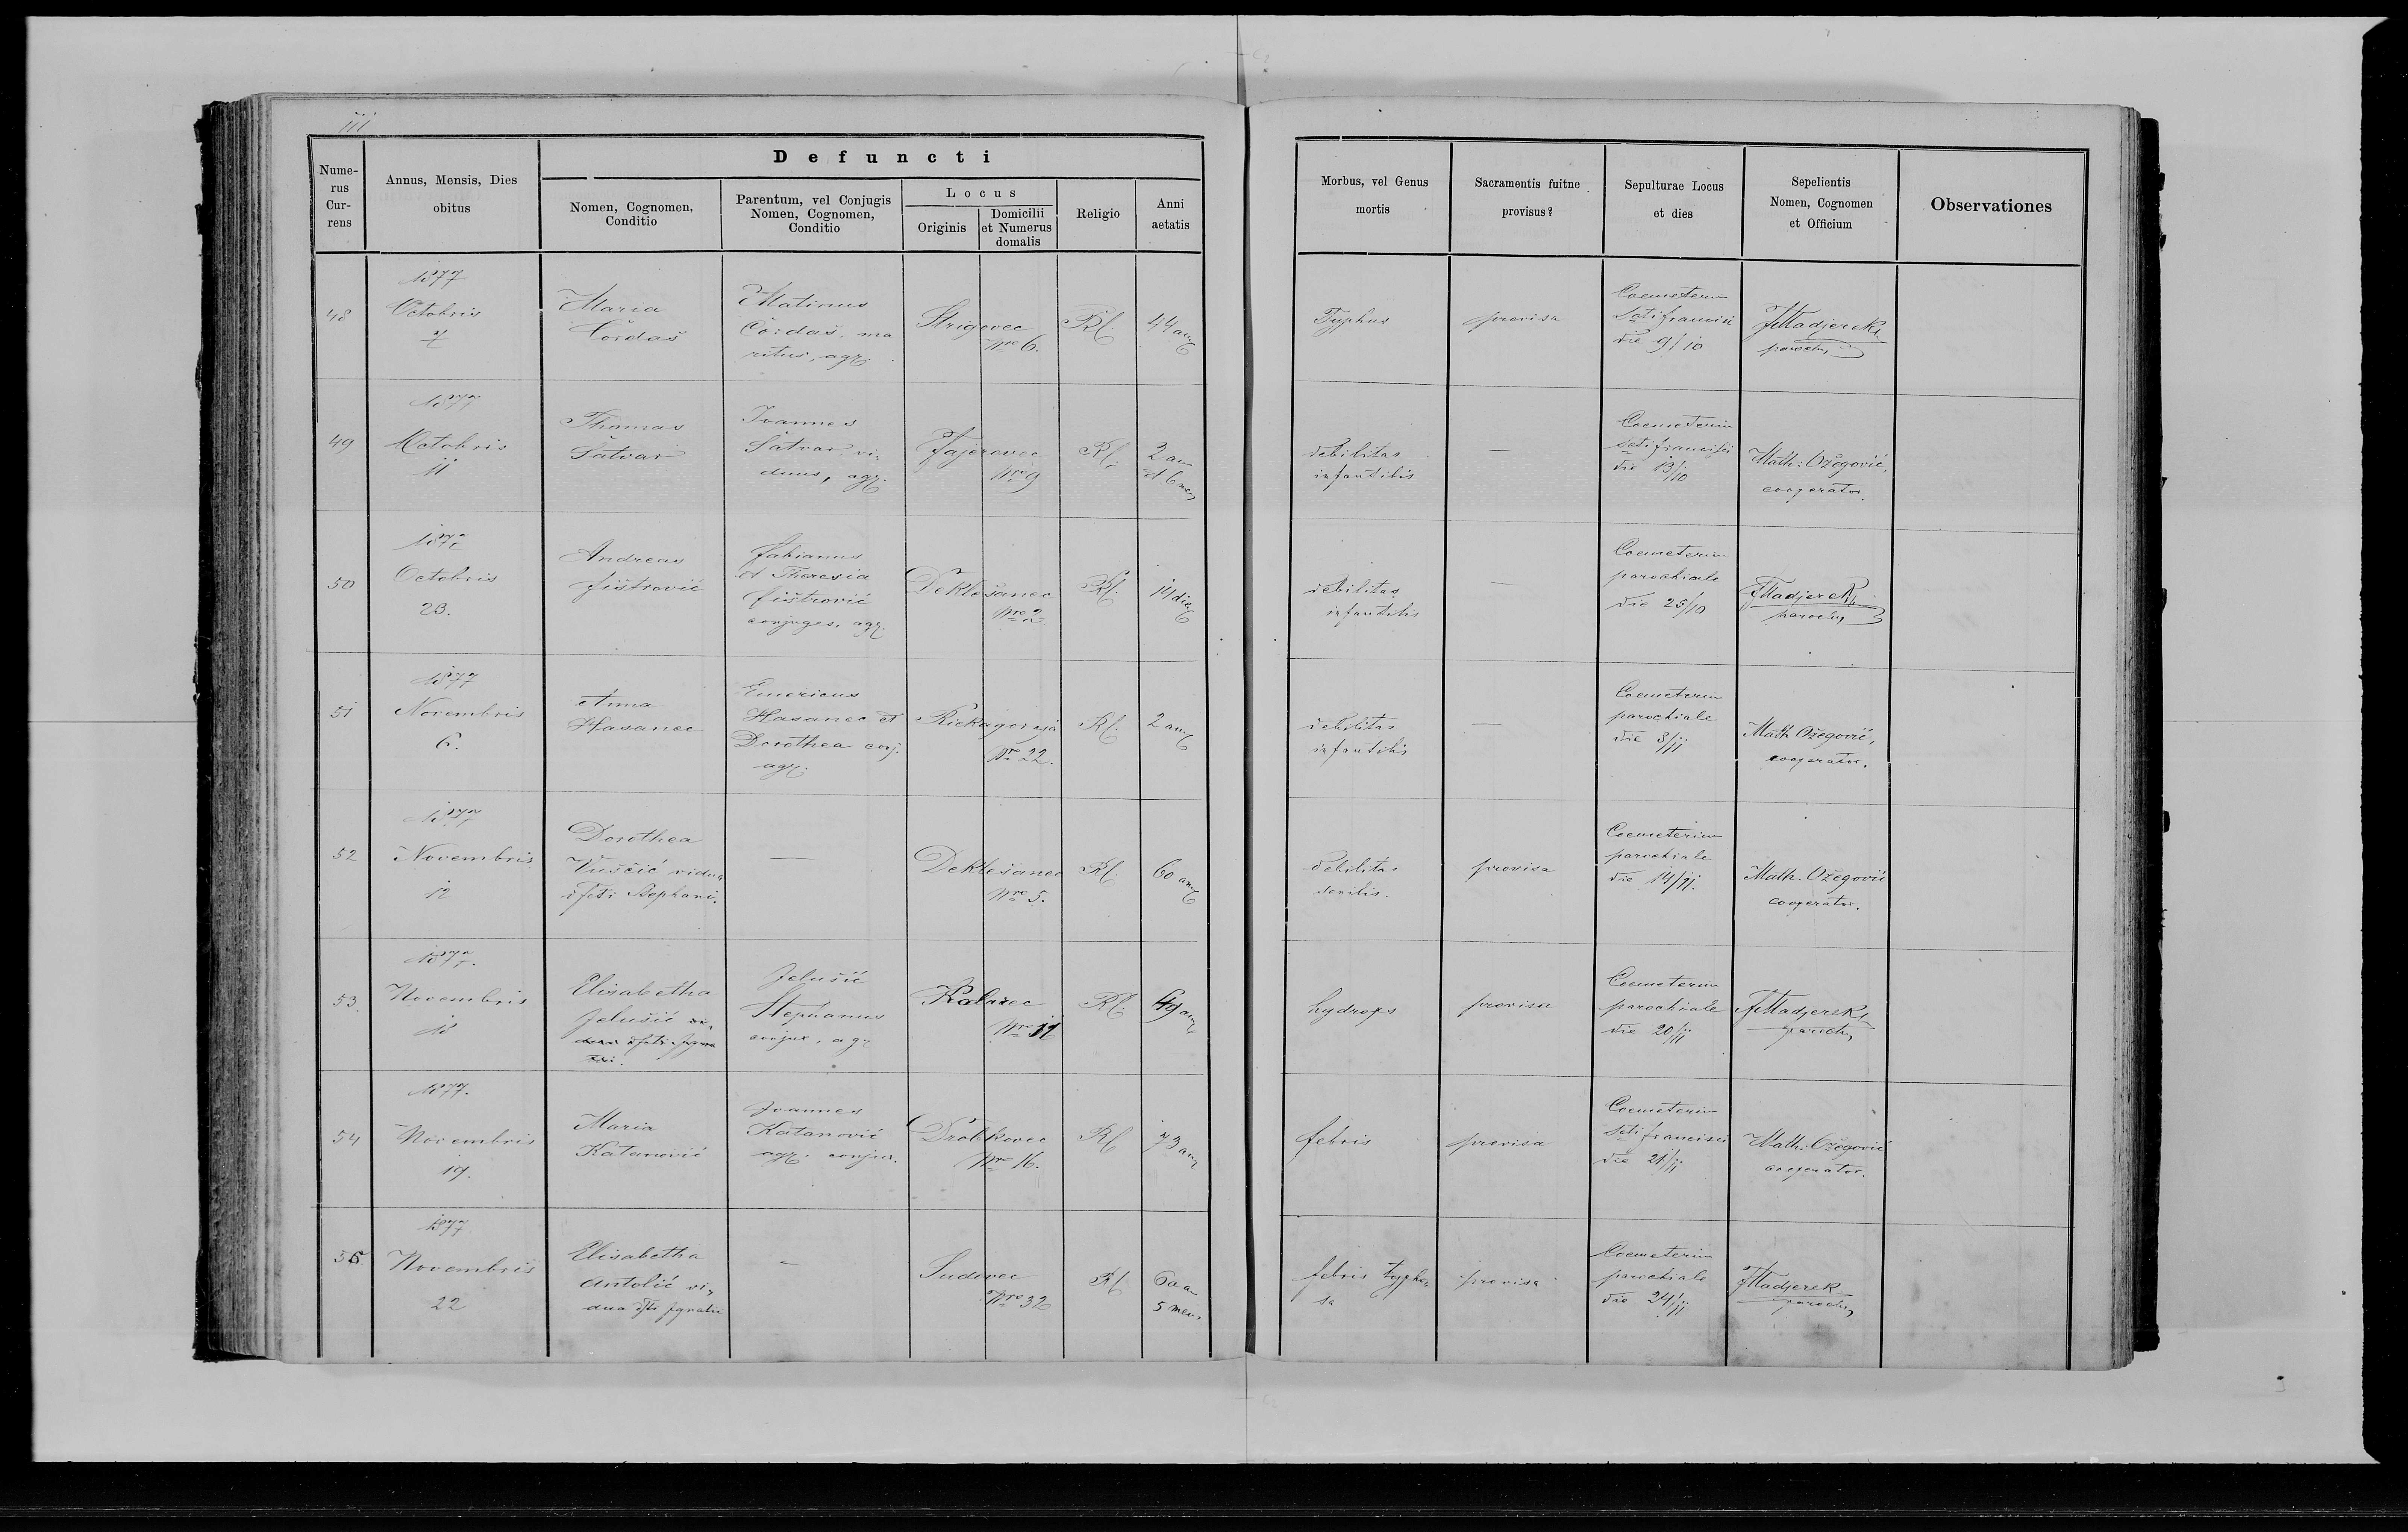 Defuncti
Numerus Currens
Annus, Mensis, Dies obitus
Nomen, Cognomen, Conditio
Parentum, vel Conjugis Nomen, Cognomen, Conditio
Locus
Originis
Domicilii et Numerus domalis
Religio
Anni aetatis
Morbus, vel Genus mortis
Sacramentis fuitne provisus?
Sepulturae Locus et dies
Sepelientis Nomen, Cognomen et Officium
Observationes
48
1877
Octobris
7
Maria
Čordaš
Matinus
Čordaš, ma
ritus, agr.
Strigovec
Nro 6.
RC.
44 an
Typhus
provisa
Coemeterium
Scti francisci
die 9/10
FMadjerek
paroch
49
1877
Octobris
11
Thomas
Šatvar
Ivannes
Šatvar, vi-
duus, agr.
Fajerovec
Nro 9
RC.
2 an
et 6 men
debilitas
infantilis
—
Coemeterium
Scti francisci
die 13/10
Math: Ožegović,
cooperator.
50
1877
Octobris
23.
Andreas
fištrović
fabianus
et Theresia
fištrović
conjuges, agr.
Deklešanec
Nro 2
RC.
14 die
debilitas
infantilis
—
Coemeterium
parochiale
die 25/10
FMadjerek
paroch
51
1877
Novembris
6.
Anna
Hasanec
Emericus
Hasanec et
Dorothea conj.
agr.
Riekagornja
Nro 22.
RC.
2 an
debilitas
infantilis
—
Coemeterium
parochiale
die 8/11
Math Ožegović,
cooperator.
52
1877
Novembris
12
Dorothea
Vuščić vidua
dfcti Stephani.
—
Deklešanec
Nro 5.
RC.
60 an
debilitas
senilis.
provisa
Coemeterium
parochiale
die 14/11.
Math. Ožegović
cooperator.
53.
1877.
Novembris
18
Elisabetha
Jelušić
Jelušić
Stephanus
conjux, agr
Kalarec
Nro 11
RC.
49 an
hydrops
provisa
Coemeterium
parochiale
die 20/11
FMadjerek
paroch
54
1877.
Novembris
19.
Maria
Katanović
Joannes
Katanović
agr. conjux.
Drobkovec
Nro 16.
RC
73 an
febris
provisa
Coemeterium
Scti francisci
die 21/11
Math. Ožegović
cooperator.
55.
1877
Novembris
22
Elisabetha
Antolić vi-
dua dfti Ignatii
—
Sudovec
Nro 32
RC
60 a
5 men.
febris typho-
sa
provisa
Coemeterium
parochiale
die 24/11
FMadjerek
paroch